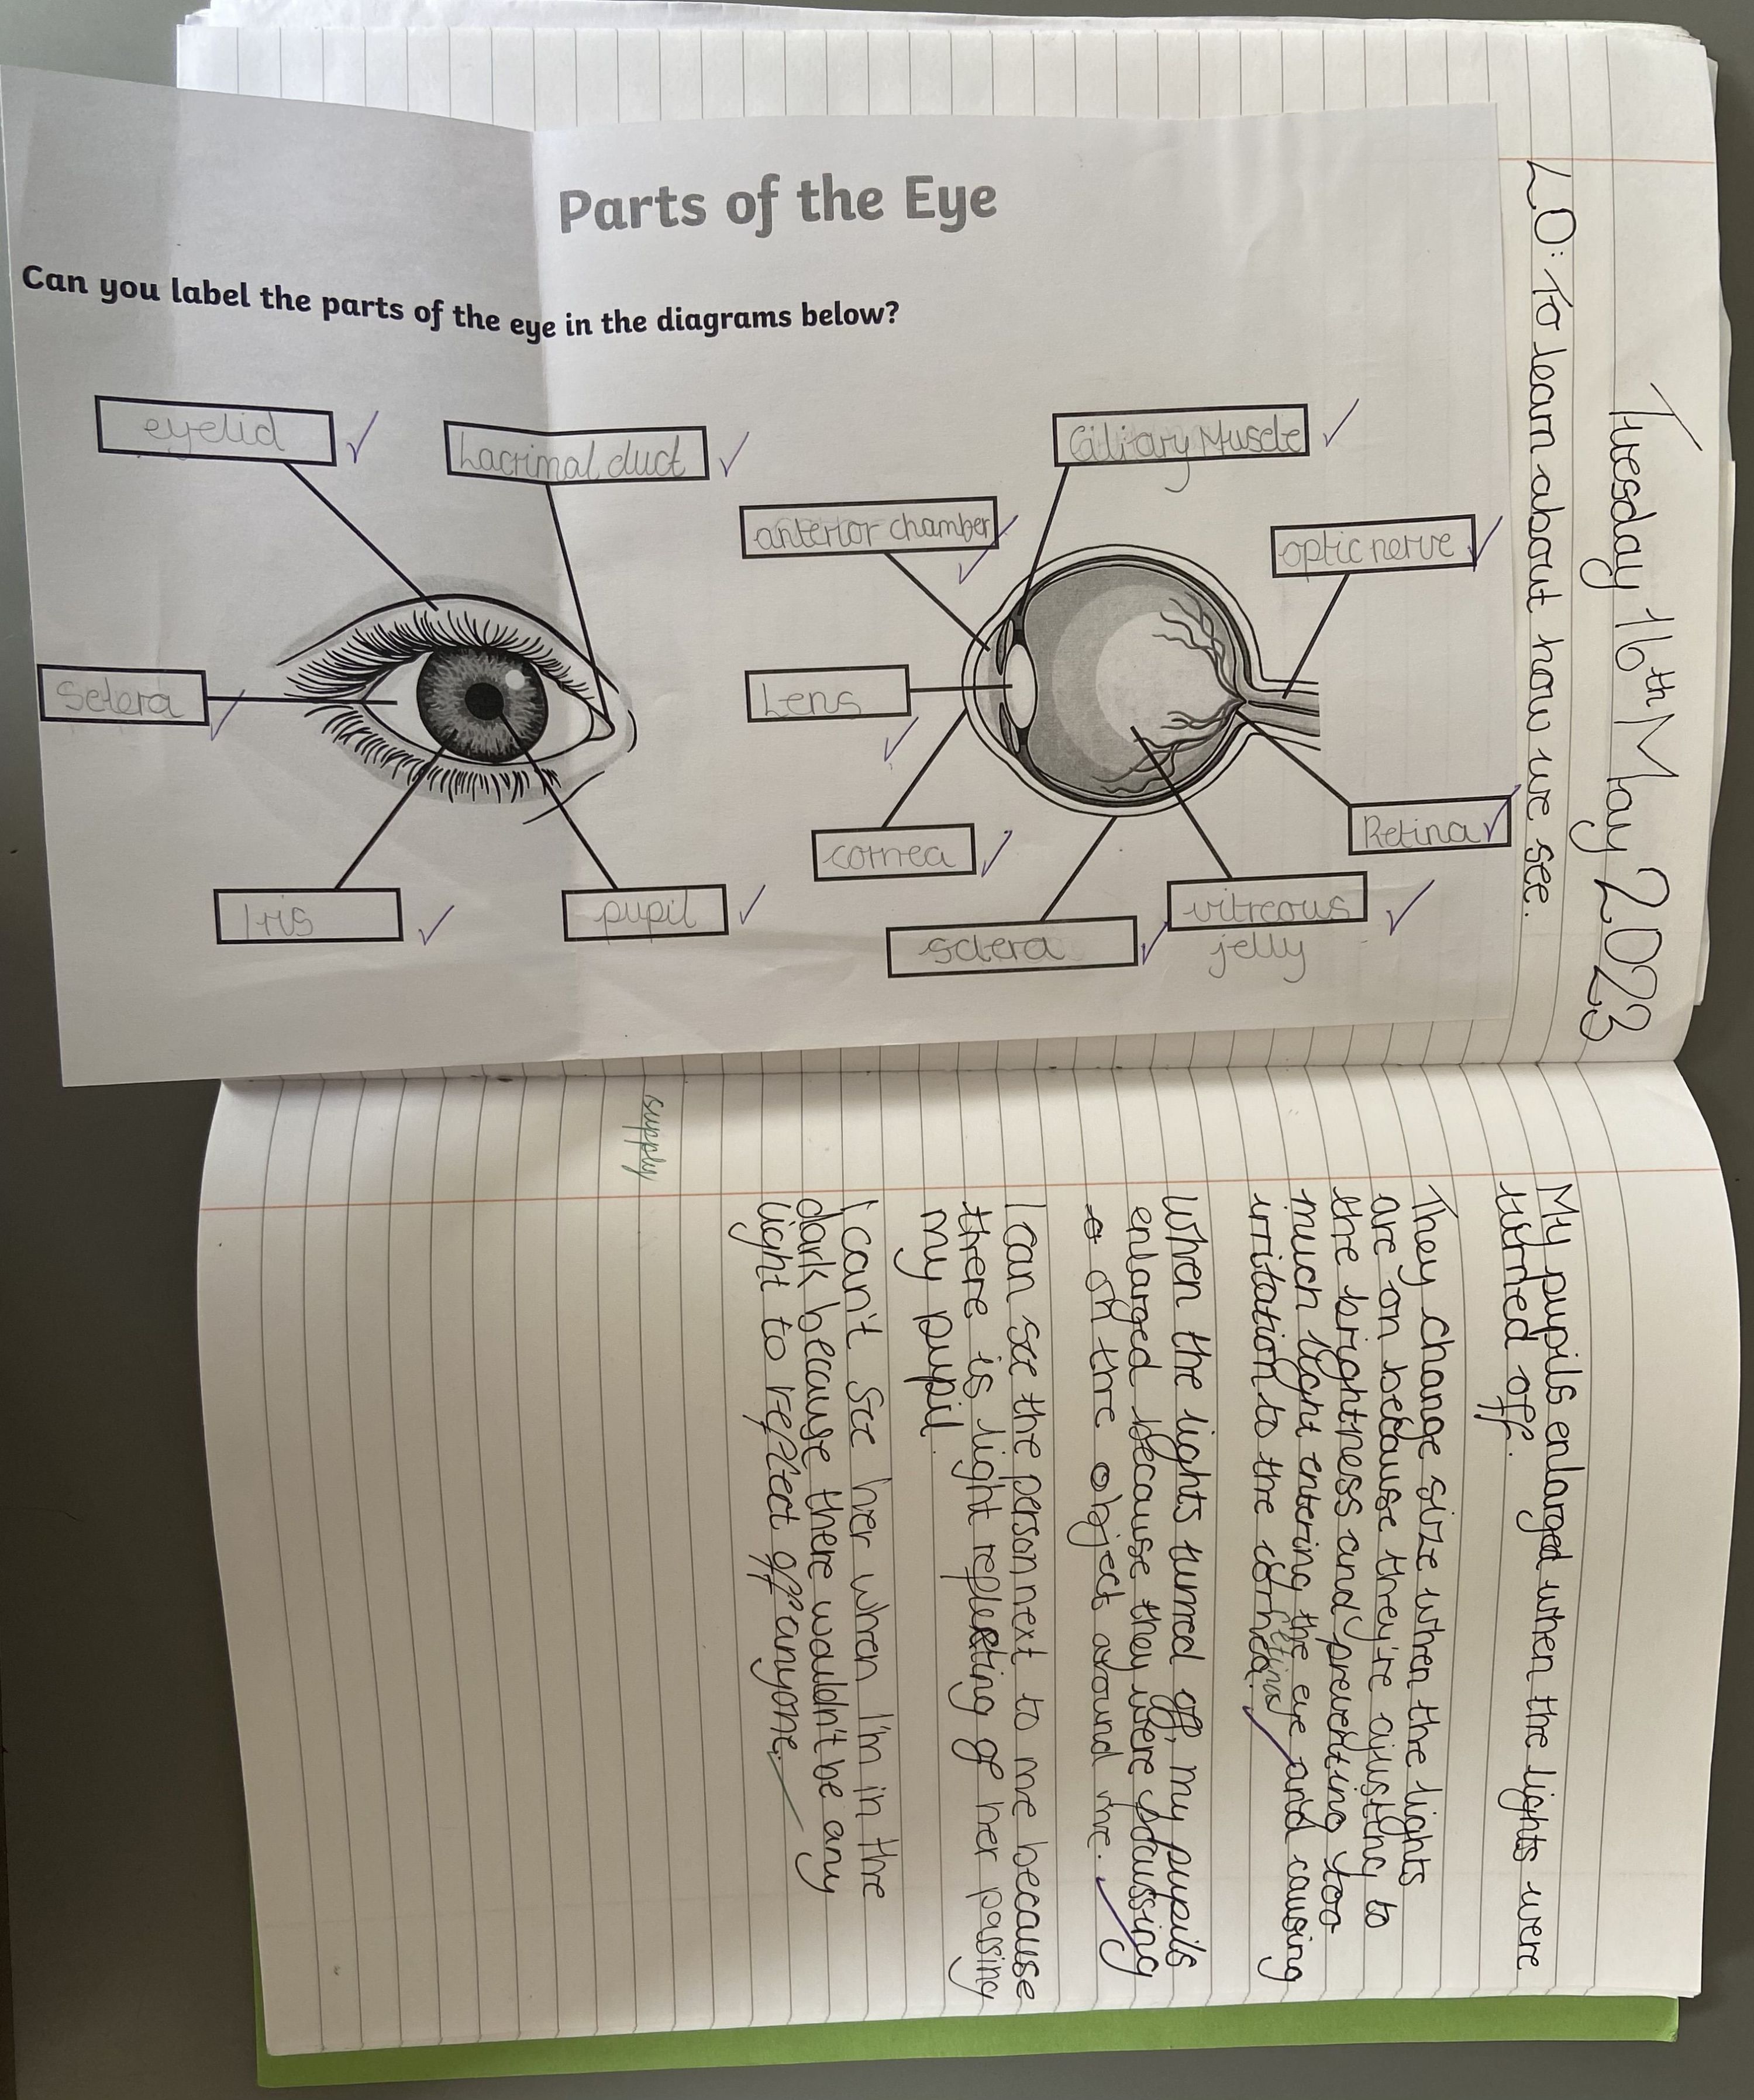 Tuesday 16th May 2023
LO: To learn about how we see.
Parts of the Eye
Can you label the parts of the eye in the diagrams below?
eyelid
Lacrimal duct
Sclera
Iris
pupil
Ciliary Muscle
anterior chamber
optic nerve
Lens
cornea
Retina
sclera
vitreous
jelly
My pupils enlarged when the lights were
turned off.
They change size when the lights
are on because they're ajusting to
the brightness and preventing too
much light entering the eye and causing
retina
irritation to the cornea.
When the lights turned off, my pupils
enlarged because they were focussing
on the object around me.
I can see the person next to me because
there is light reflecting of her passing
my pupil.
I can't see her when I'm in the
dark because there wouldn't be any
light to reflect off anyone.
supply